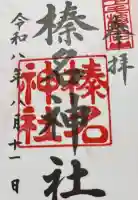 奉拝
榛名神社
榛名
神社
令和八年八月十一日